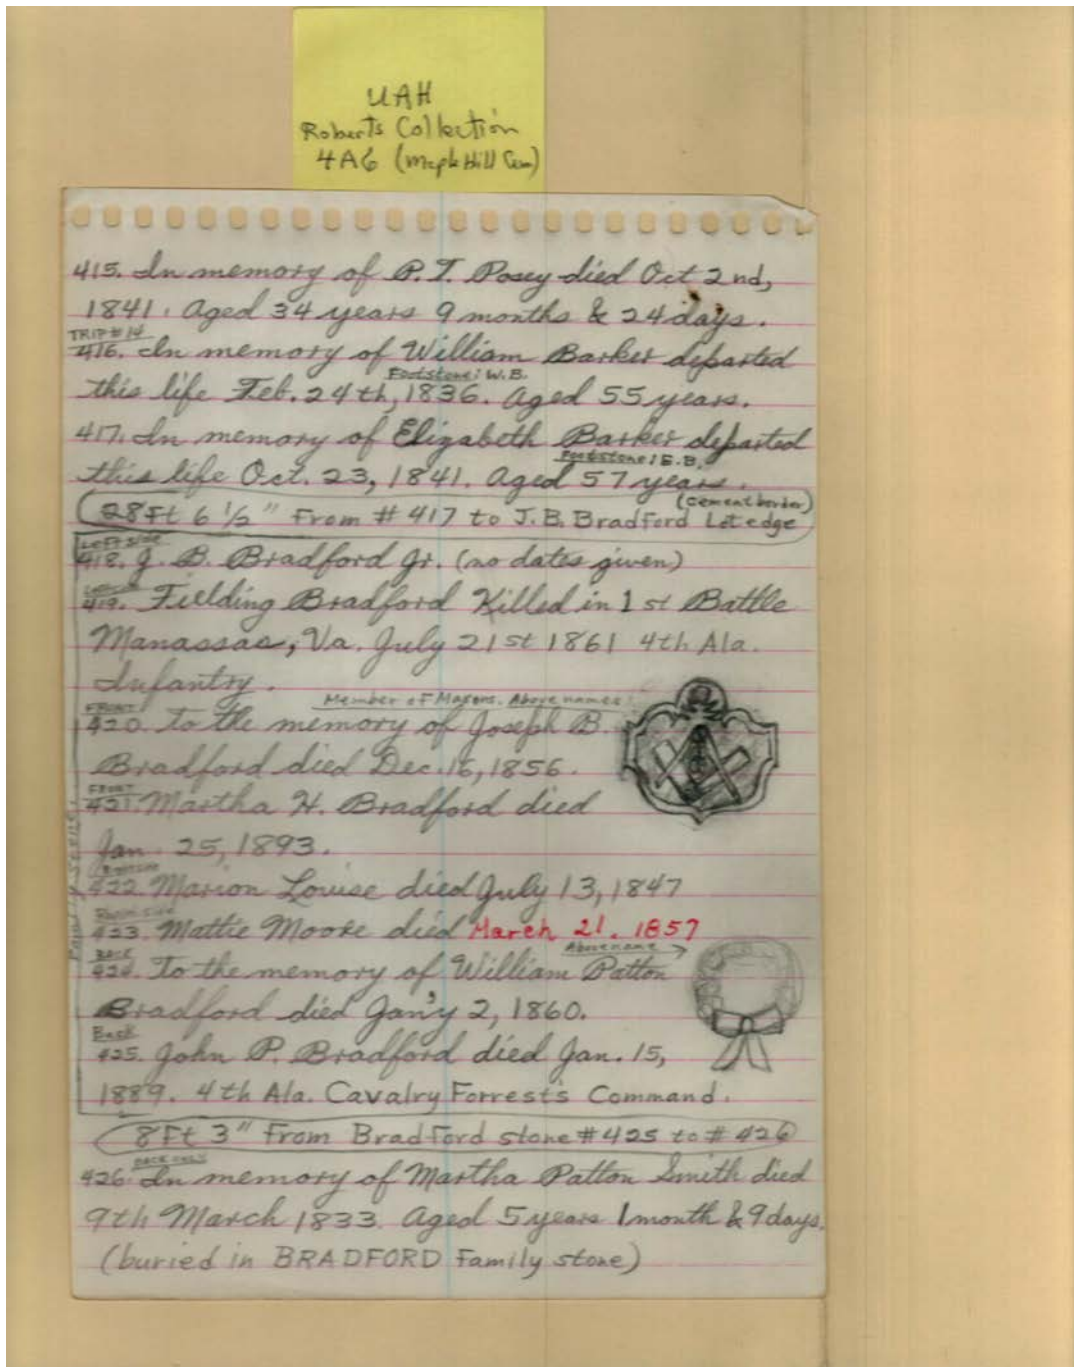 UAH
Roberts Collection
4A6 (Maple Hill Cem)
415. In memory of P. T. Posey died Oct 2nd,
1841. Aged 34 years 9 months & 24 days.
TRIP #14
416. In memory of William Barker departed
Footstone: W.B.
this life Feb. 24th, 1836. Aged 55 years.
417. In memory of Elizabeth Barker departed
Footstone: E.B.
this life Oct. 23, 1841. Aged 57 years.
(cement border)
28Ft 6 1/2" From #417 to J.B. Bradford Lot edge
Left side
418. J. B. Bradford Jr. (no dates given)
419. Fielding Bradford Killed in 1st Battle
Manassas, Va. July 21st 1861 4th Ala.
Infantry.
Member of Masons. Above names
FRONT
420. To the memory of Joseph B.
Bradford died Dec. 16, 1856.
FRONT
421. Martha H. Bradford died
Jan. 25, 1893.
422 Marion Louise died July 13, 1847
423. Mattie Moore died March 21. 1857
Above name
BACK
424. To the memory of William Patton
Bradford died Jan'y 2, 1860.
Back
425. John P. Bradford died Jan. 15,
1889. 4th Ala. Cavalry Forrest's Command.
8Ft 3" From Bradford stone #425 to #426
BACK ONLY
426 In memory of Martha Patton Smith died
9th March 1833. Aged 5 years 1 month & 9 days.
(buried in BRADFORD Family stone)